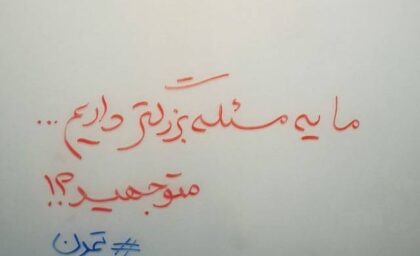 ما یه مسئله بزرگتر داریم...
متوجهید؟!
#تمدن